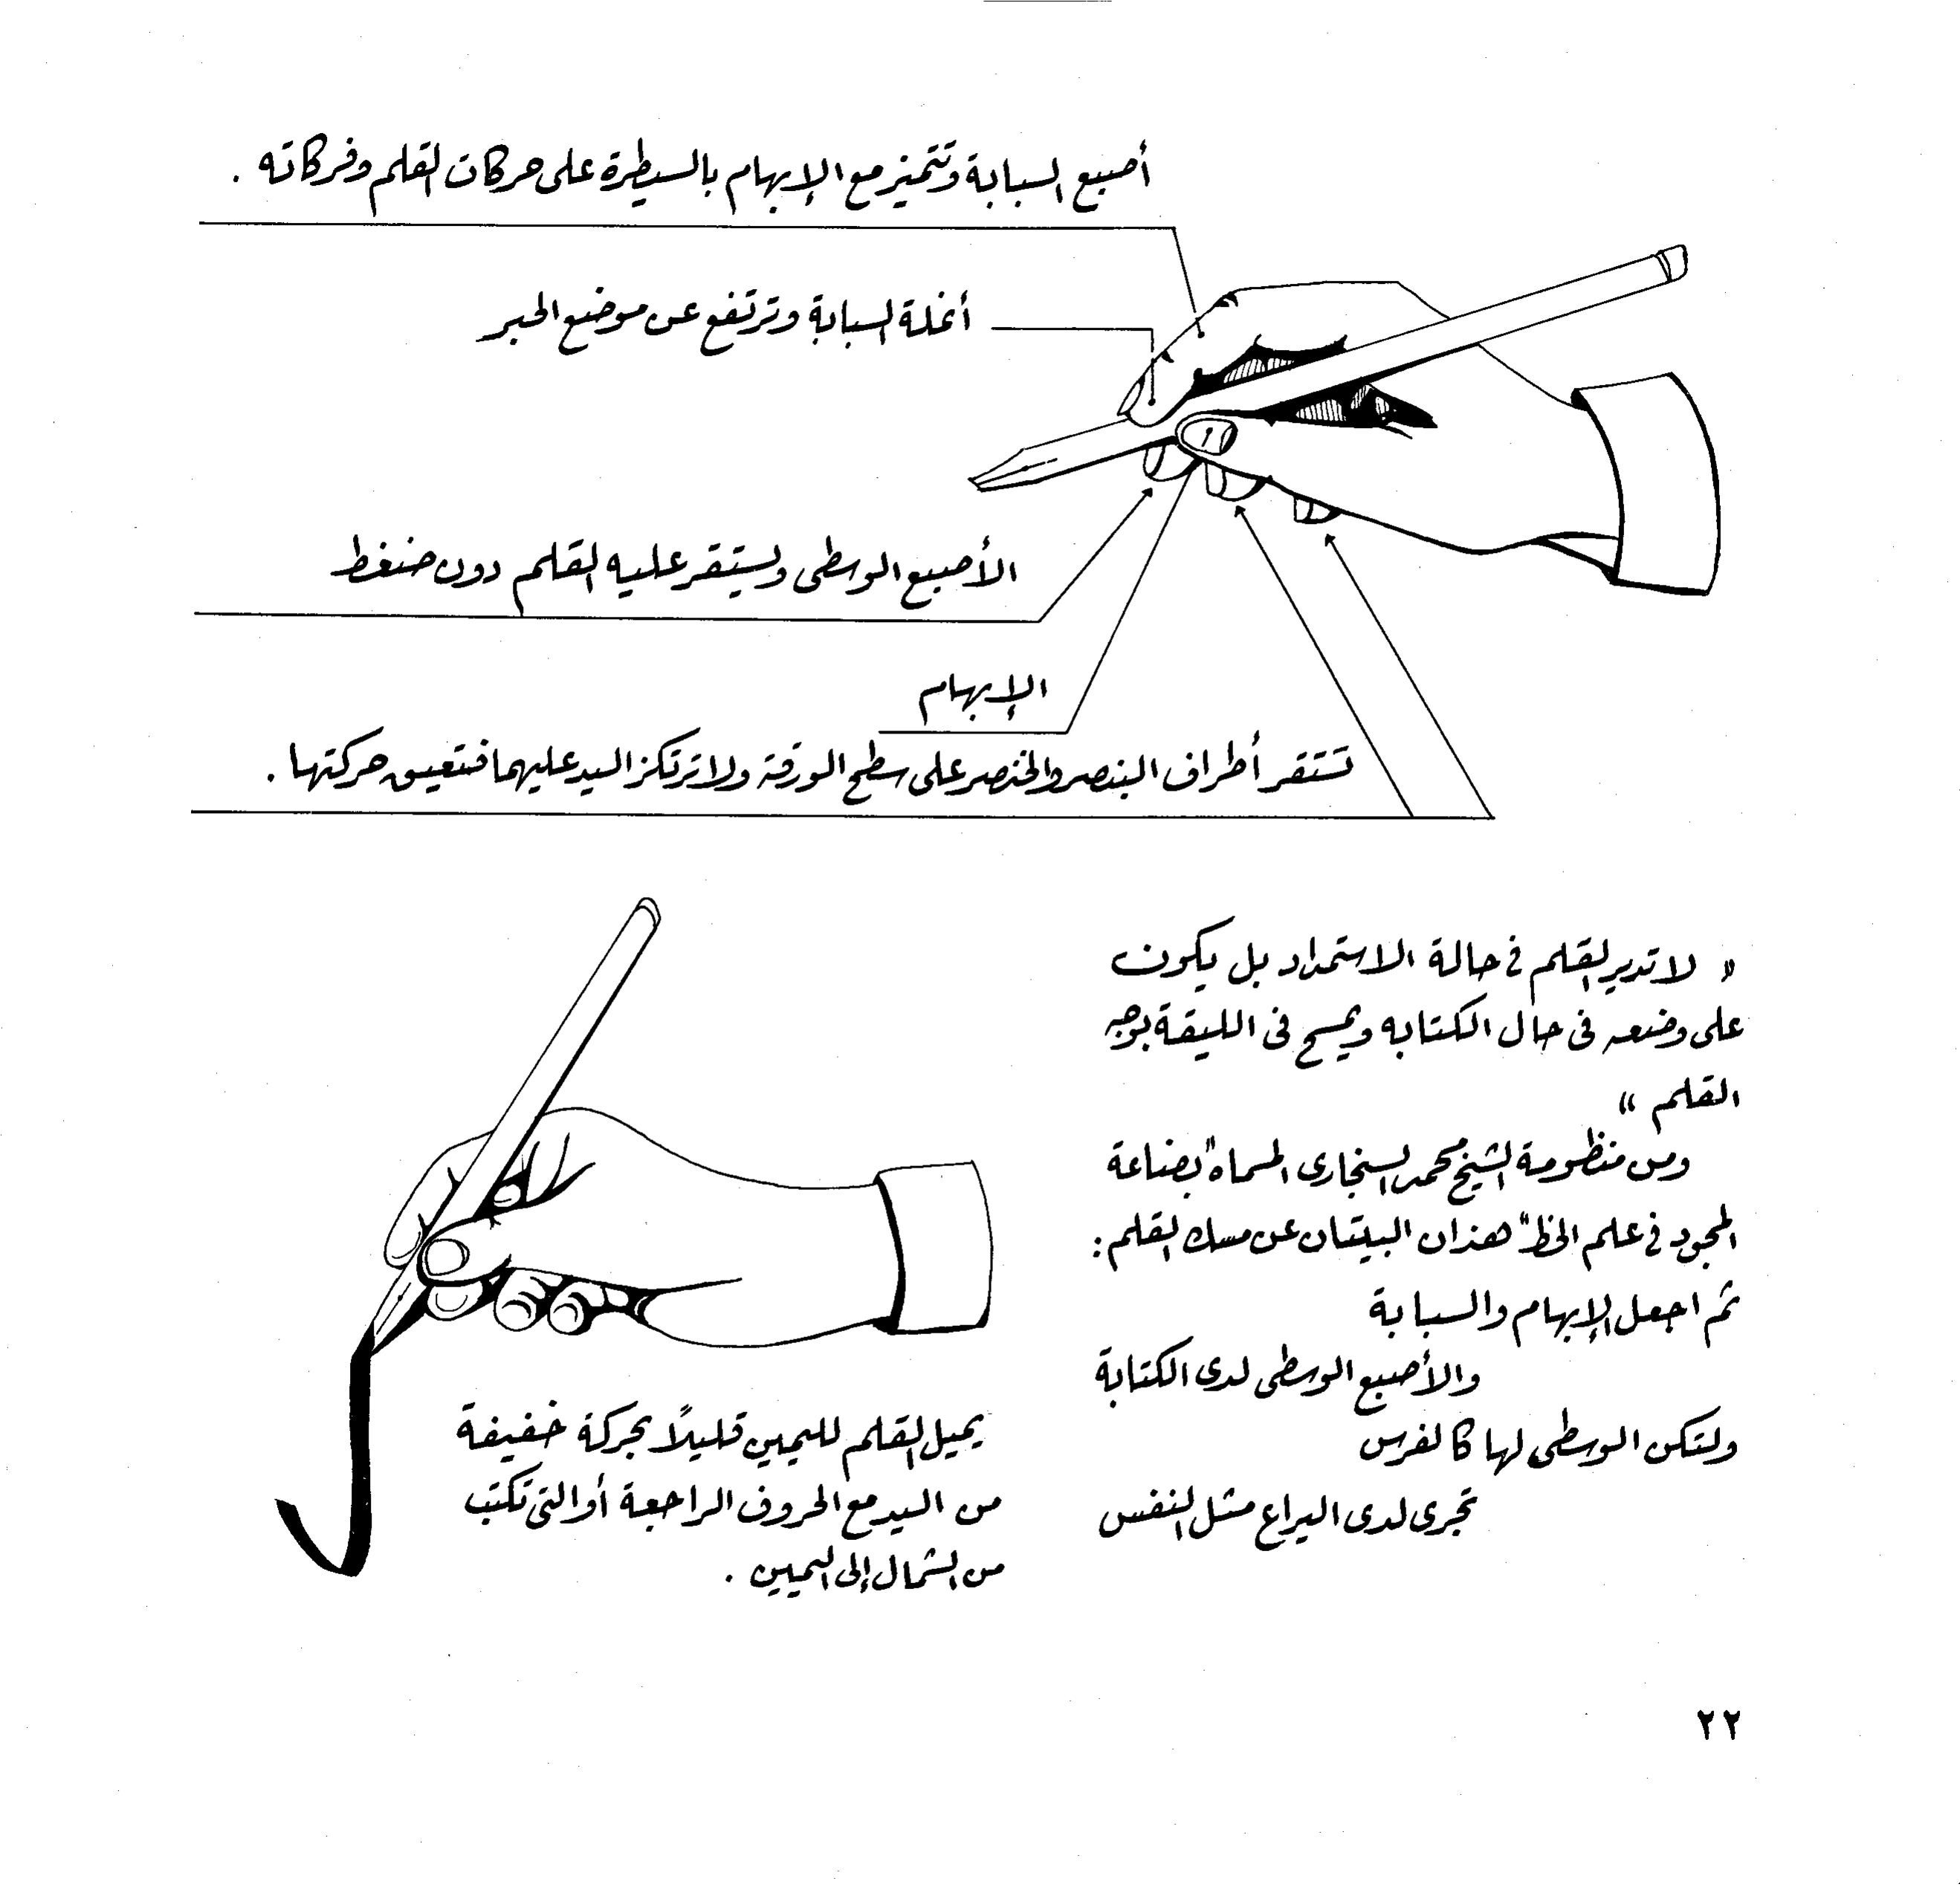 أصبع السبابة وتتميز مع الإبهام بالسيطرة على حركات القلم وفركاته .
أنملة السبابة وترتفع عن موضع الحبر
الأصبع الوسطى وليستقر عليه القلم دون ضغط
الإبهام
تستقر أطراف البنصر والخنصر على سطح الورقة ولا ترتكز اليد عليهما فتعيق حركتها .
" لا تدير القلم في حالة الاستمداد بل يكون
على وضعه في حال الكتابه ويمسح في الليقة بوجه
القلم "
ومن منظومة الشيخ محمد السنجارى المسماه "بضاعة
المجود في علم الخط" هذان البيتان عن مسك القلم :
ثم اجعل الإبهام والسبابة
والأصبع الوسطى لدى الكتابة
ولتكن الوسطى لها كالفرس
تجرى لدى اليراع مثل النفس
يميل القلم لليمين قليلاً بحركة خفيفة
من اليد مع الحروف الراجعة أو التى تكتب
من الشمال إلى اليمين .
٢٢